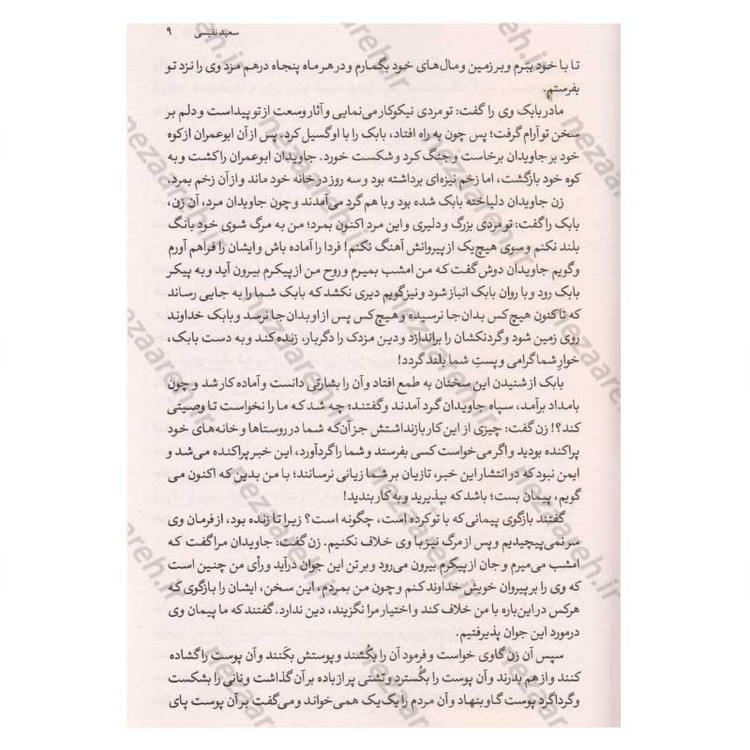 سعید نفیسی ۹
تا با خود ببرم و بر زمین و مال‌های خود بگمارم و در هر ماه پنجاه درهم مزد وی را نزد تو
بفرستم.
مادر بابک وی را گفت: تو مردی نیکوکار می‌نمایی و آثار وسعت از تو پیداست و دلم بر
سخن تو آرام گرفت؛ پس چون به راه افتاد، بابک را با او گسیل کرد. پس از آن ابوعمران از کوه
خود بر جاویدان برخاست و جنگ کرد و شکست خورد. جاویدان ابوعمران را کشت و به
کوه خود بازگشت، اما زخم نیزه‌ای برداشته بود و سه روز در خانه خود ماند و از آن زخم بمرد.
زن جاویدان دلباخته بابک شده بود و با هم گرد می‌آمدند و چون جاویدان مرد، آن زن،
بابک را گفت: تو مردی بزرگ و دلیری و این مرد اکنون بمرد؛ من به مرگ شوی خود بانگ
بلند نکنم و سوی هیچ یک از پیروانش آهنگ نکنم! فردا را آماده باش و ایشان را فراهم آورم
و گویم جاویدان دوش گفت که من امشب بمیرم و روح من از پیکرم بیرون آید و به پیکر
بابک رود و با روان بابک انباز شود و نیز گویم دیری نکشد که بابک شما را به جایی رساند
که تاکنون هیچ کس بدان جا نرسیده و هیچ کس پس از او بدان جا نرسد و بابک خداوند
روی زمین شود و گردنکشان را براندازد و دین مزدک را دگربار، زنده کند و به دست بابک،
خوار شما گرامی و پستِ شما بلند گردد!
بابک از شنیدن این سخنان به طمع افتاد و آن را بشارتی دانست و آماده کار شد و چون
بامداد برآمد، سپاه جاویدان گرد آمدند و گفتند: چه شد که ما را نخواست تا وصیتی
کند؟! زن گفت: چیزی از این کار بازنداشتش جز آن که شما در روستاها و خانه‌های خود
پراکنده بودید و اگر می‌خواست کسی بفرستد و شما را گرد آورد، این خبر پراکنده می‌شد و
ایمن نبود که در انتشار این خبر، تازیان بر شما زیانی نرسانند؛ با من بدین که اکنون می
گویم، پیمان بست؛ باشد که بپذیرید و به کار بندید!
گفتند بازگوی پیمانی که با تو کرده است، چگونه است؟ زیرا تا زنده بود، از فرمان وی
سر نمی‌پیچیدیم و پس از مرگ نیز با وی خلاف نکنیم. زن گفت: جاویدان مرا گفت که
امشب می‌میرم و جان از پیکرم بیرون می‌رود و بر تن این جوان درآید و رأی من چنین است
که وی را بر پیروان خویش خداوند کنم و چون من بمردم، این سخن، ایشان را بازگوی که
هرکس در این باره با من خلاف کند و اختیار مرا نگزیند، دین ندارد. گفتند که ما پیمان وی
درمورد این جوان پذیرفتیم.
سپس آن زن گاوی خواست و فرمود آن را بکُشند و پوستش بکَنند و آن پوست را گشاده
کنند و از هم بدرند و آن پوست را بگُسترد و تشتی پر از باده بر آن گذاشت و نانی را بشکست
و گرداگرد پوست گاو بنهاد و آن مردم را یک یک همی خواند و می‌گفت بر آن پوست پای
nezaareh.ir